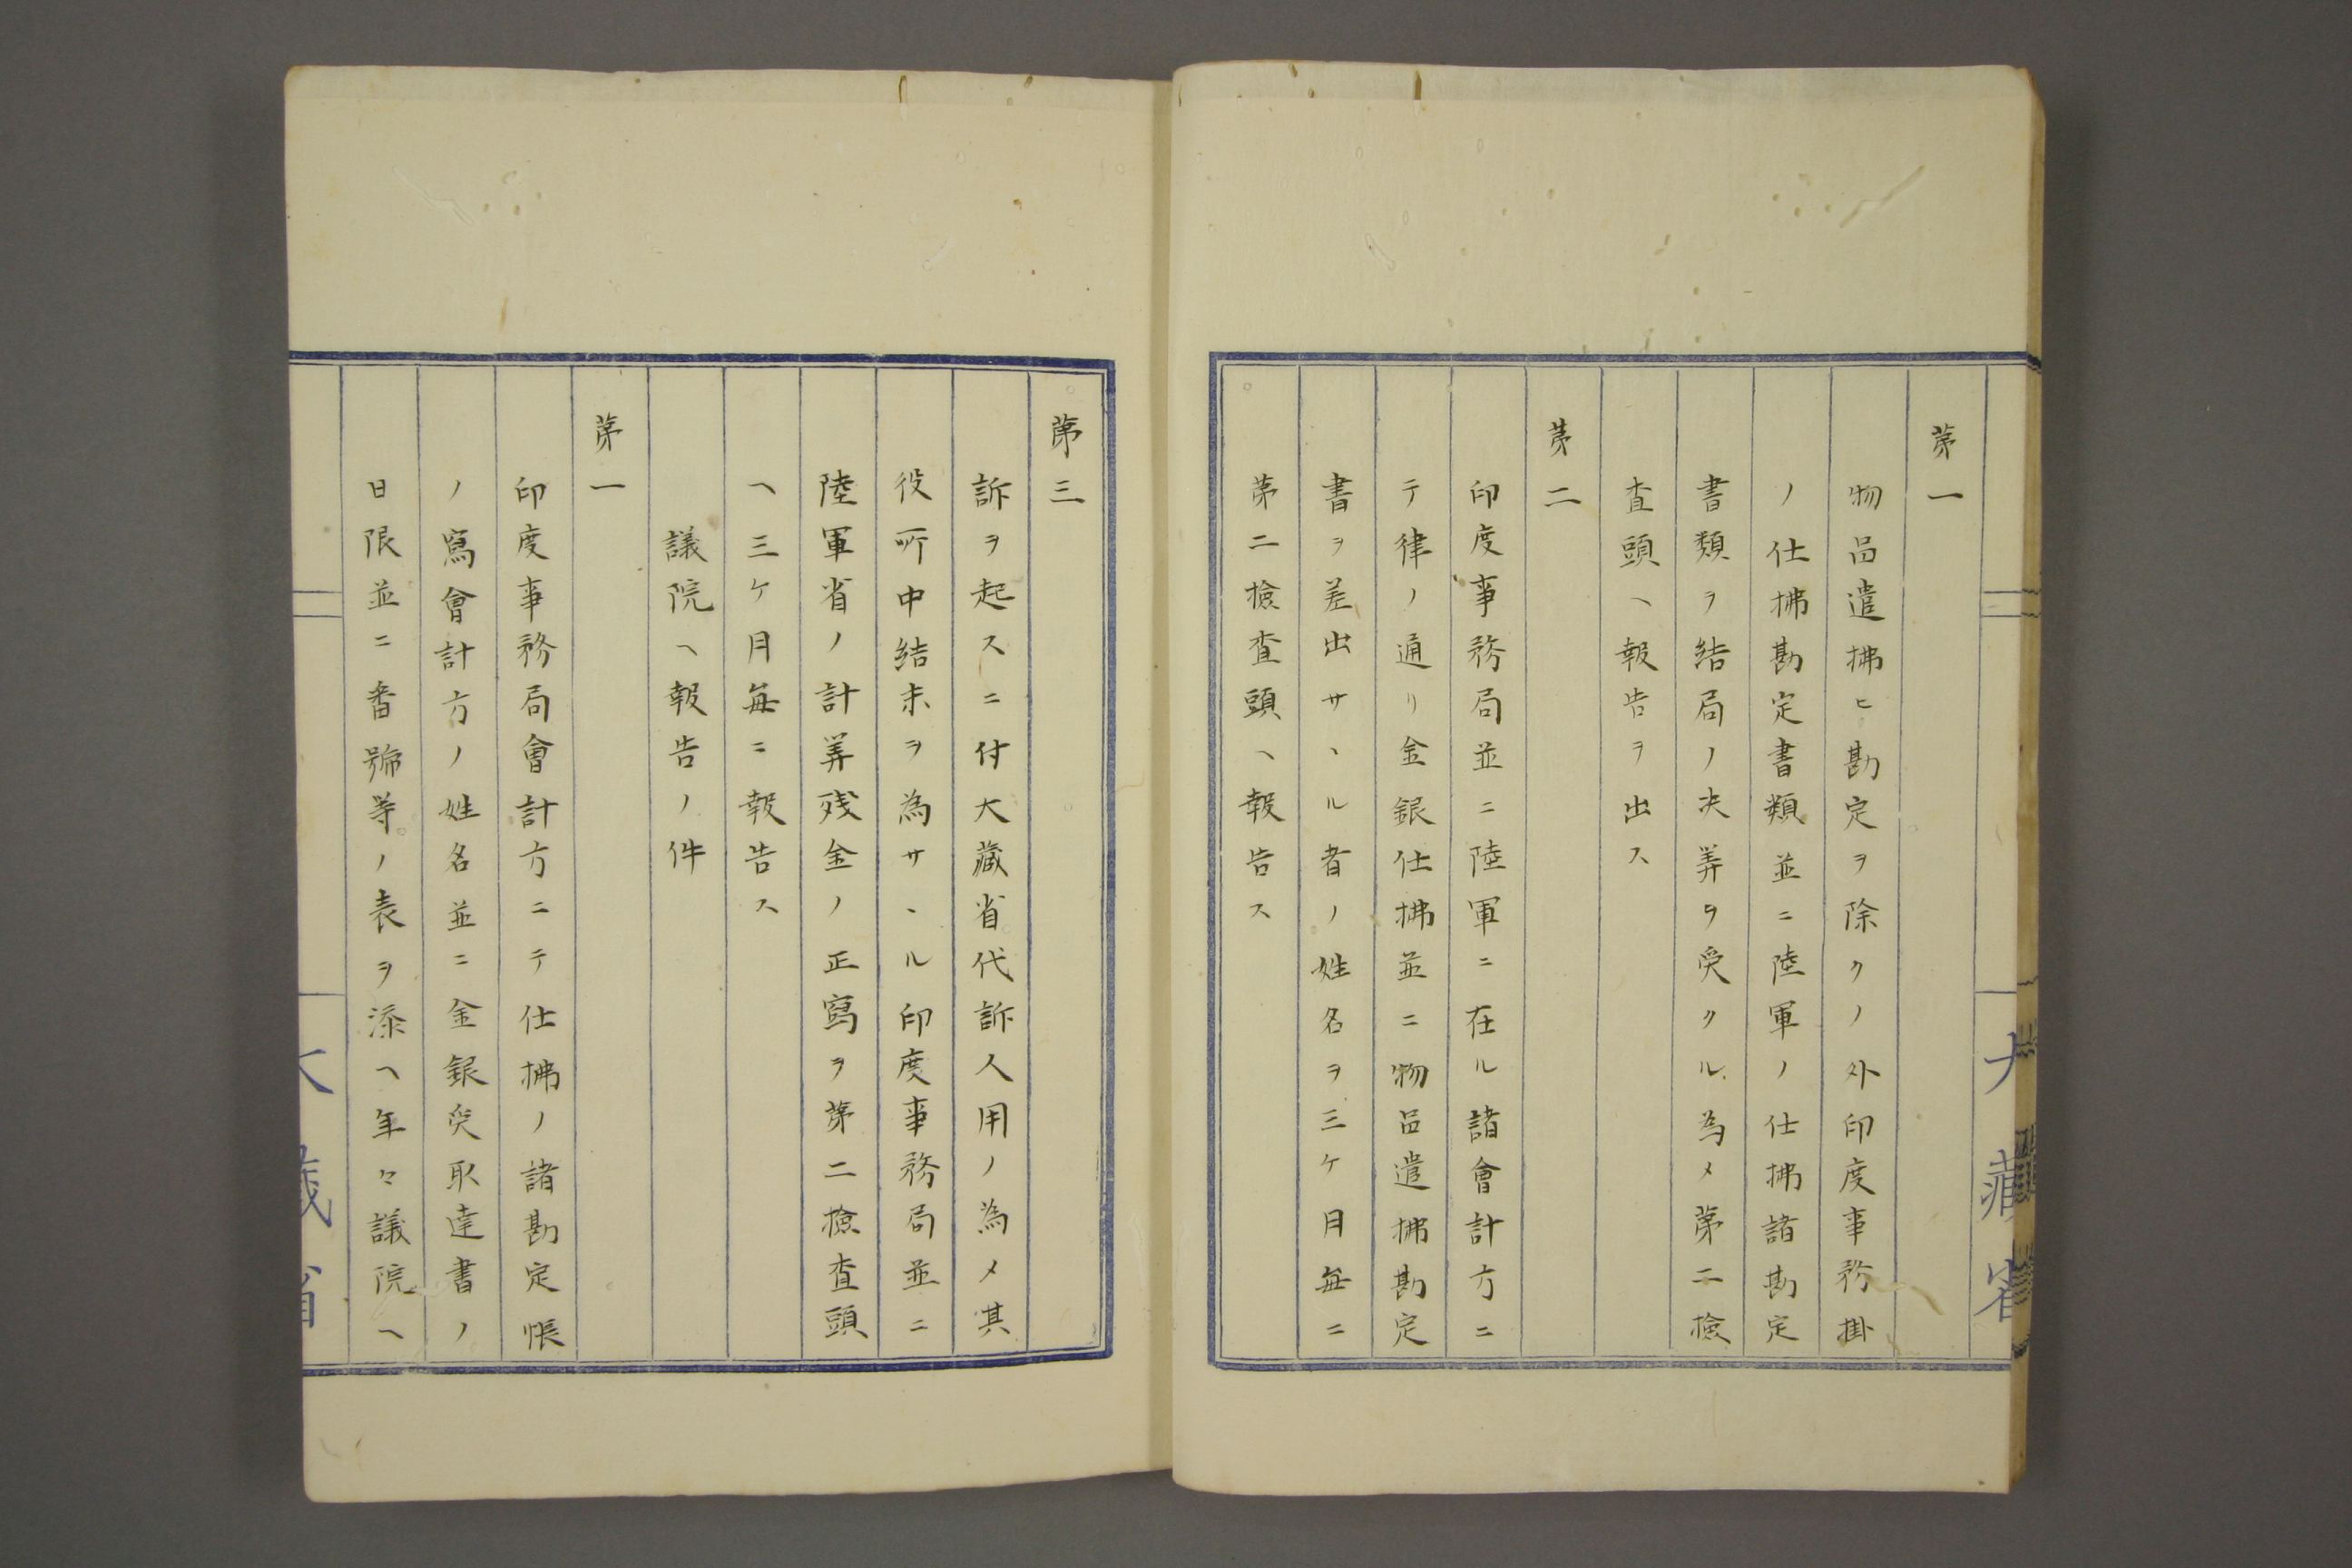 大藏省
第一
物品遣拂ヒ勘定ヲ除クノ外印度事務掛
ノ仕拂勘定書類並ニ陸軍ノ仕拂諸勘定
書類ヲ結局ノ决筭ヲ受クル為メ第二撿
査頭ヘ報告ヲ出ス
第二
印度事務局並ニ陸軍ニ在ル諸會計方ニ
テ律ノ通リ金銀仕拂並ニ物品遣拂勘定
書ヲ差出サヽル者ノ姓名ヲ三ケ月毎ニ
第二撿査頭ヘ報告ス
第三
訴ヲ起スニ付大藏省代訴人用ノ為メ其
役所中結末ヲ為サヽル印度事務局並ニ
陸軍省ノ計筭残金ノ正寫ヲ第二撿査頭
ヘ三ケ月毎ニ報告ス
議院ヘ報告ノ件
第一
印度事務局會計方ニテ仕拂ノ諸勘定帳
ノ寫會計方ノ姓名並ニ金銀受取達書ノ
日限並ニ番號等ノ表ヲ添ヘ年々議院ヘ
大藏省